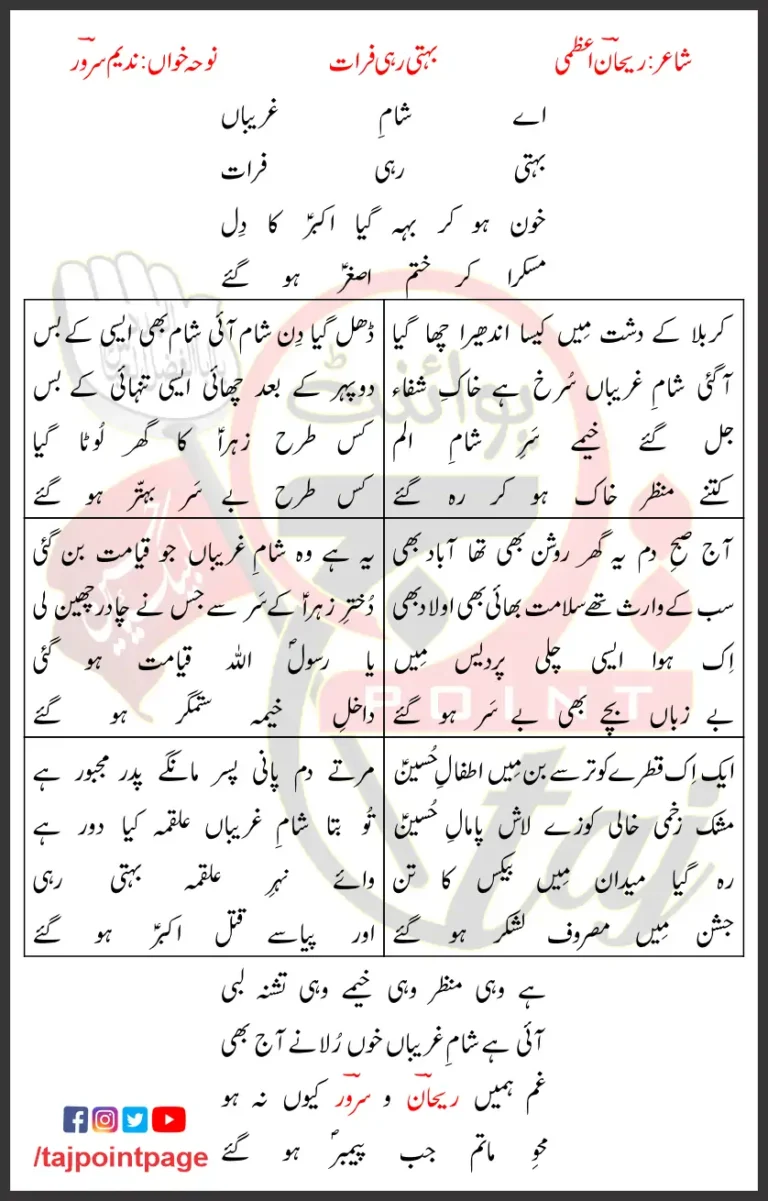 شاعر: ریحانؔ اعظمی
بہتی رہی فرات
نوحہ خواں: ندیم سرورؔ
اے شامِ غریباں
بہتی رہی فرات
خون ہو کر بہہ گیا اکبرؑ کا دِل
مسکرا کر ختم اصغرؑ ہو گئے
کربلا کے دشت مِیں کیسا اندھیرا چھا گیا
آگئی شامِ غریباں سُرخ ہے خاکِ شفاء
جل گئے خیمے سَرِ شامِ الم
کتنے منظر خاک ہو کر رہ گئے
ڈھل گیا دِن شام آئی شام بھی ایسی کے بس
دوپہر کے بعد چھائی ایسی تنہائی کے بس
کس طرح زہراؑ کا گھر لُوٹا گیا
کس طرح بے سَر بہتّر ہو گئے
آج صبحِ دم یہ گھر روشن بھی تھا آباد بھی
سب کے وارث تھے سلامت بھائی بھی اولاد بھی
اِک ہوا ایسی چلی پردیس مِیں
بے زباں بچے بھی بے سَر ہو گئے
یہ ہے وہ شامِ غریباں جو قیامت بن گئی
دُخترِ زہراؑ کے سَر سے جس نے چادر چھین لی
یا رسولؐ اللہ قیامت ہو گئی
داخلِ خیمہ ستمگر ہو گئے
ایک اِک قطرے کو ترسے بن مِیں اطفالِ حُسینؑ
مشک زخمی خالی کوزے لاش پامالِ حُسینؑ
رہ گیا میدان مِیں بیکس کا تن
جشن مِیں مصروف لشکر ہو گئے
مرتے دم پانی پسر مانگے پدر مجبور ہے
تُو بتا شامِ غریباں علقمہ کیا دور ہے
وائے نہرِ علقمہ بہتی رہی
اور پیاسے قتل اکبرؑ ہو گئے
ہے وہی منظر وہی خیمے وہی تشنہ لبی
آئی ہے شامِ غریباں خوں رُلانے آج بھی
غم ہمیں ریحانؔ و سرورؔ کیوں نہ ہو
محوِ ماتم جب پیمبرؐ ہو گئے
/tajpointpage
پوائنٹ
POINT
taj